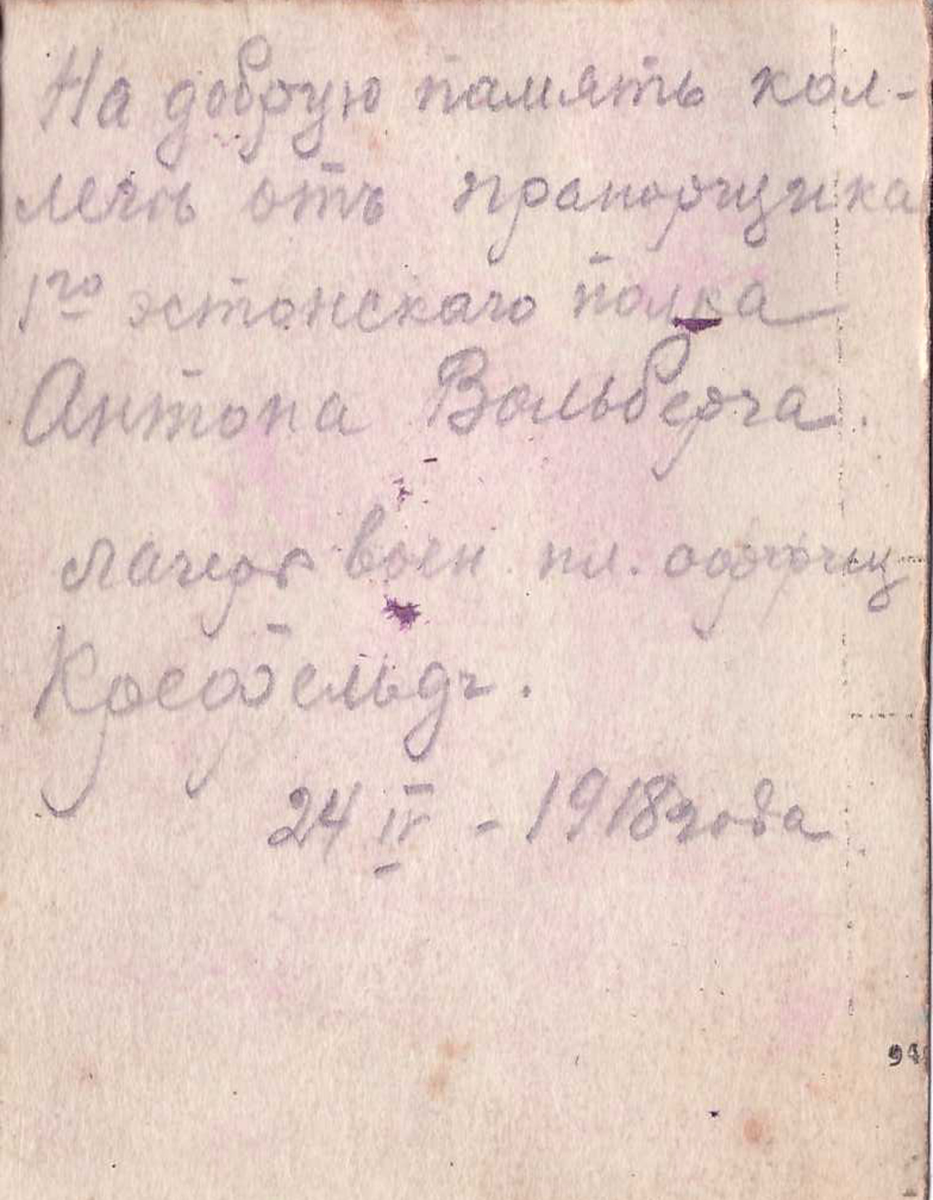 На добрую память кол-
легѣ отъ прапорщика
1го эстонскаго полка
Антона Вольберга.
лагерь воен. пл. офиц
Крефельдъ.
24 IV - 1918 года
94